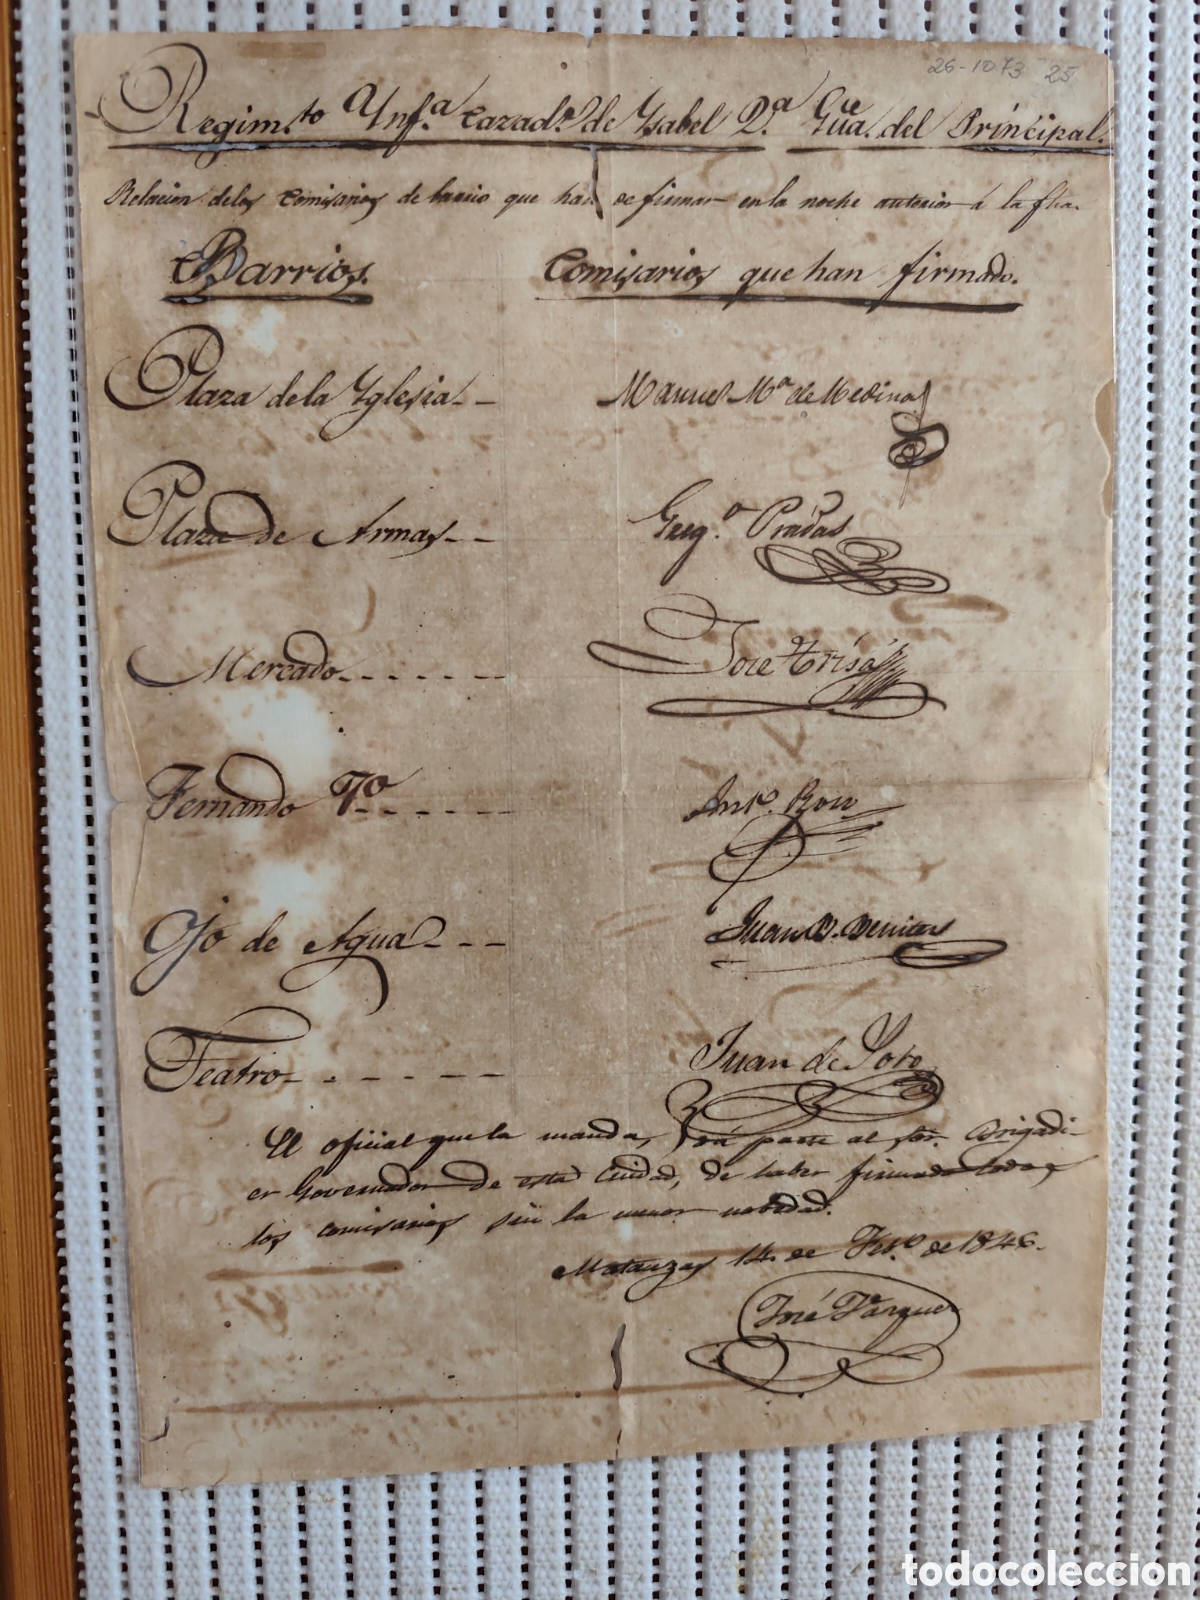 26-1073 25
Regim.to Ynf.a Cazad.s de Ysabel 2.a Gu.a del Principal.
Relacion delos Comisarios de barrio que han de firmar en la noche anterior á la fha.
Barrios. Comisarios que han firmado.
Plaza dela Yglesia-- Manuel M.a de Medina
Plaza de Armas-- Greg.o Pradas
Mercado------- José
Fernando 7.o------ Ant.o
Ojo de Agua--- Juan B. Benitez
Teatro------ Juan de Soto
El oficial que la manda, dá parte al Sor. Brigadi-
er Governador de esta Ciudad, de haber firmado todos
los comisarios sin la menor nobedad.
Matanzas 14. de Feb.o de 1846.
José Vazquez
todocoleccion